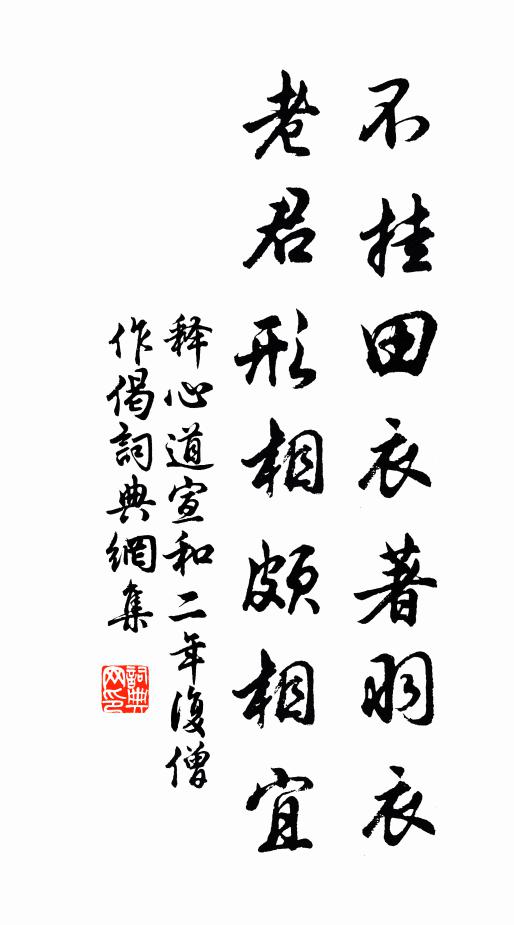 不挂田衣著羽衣
老君形相頗相宜
释心道宣和二年復僧
作偈詞典網集
詞典网印